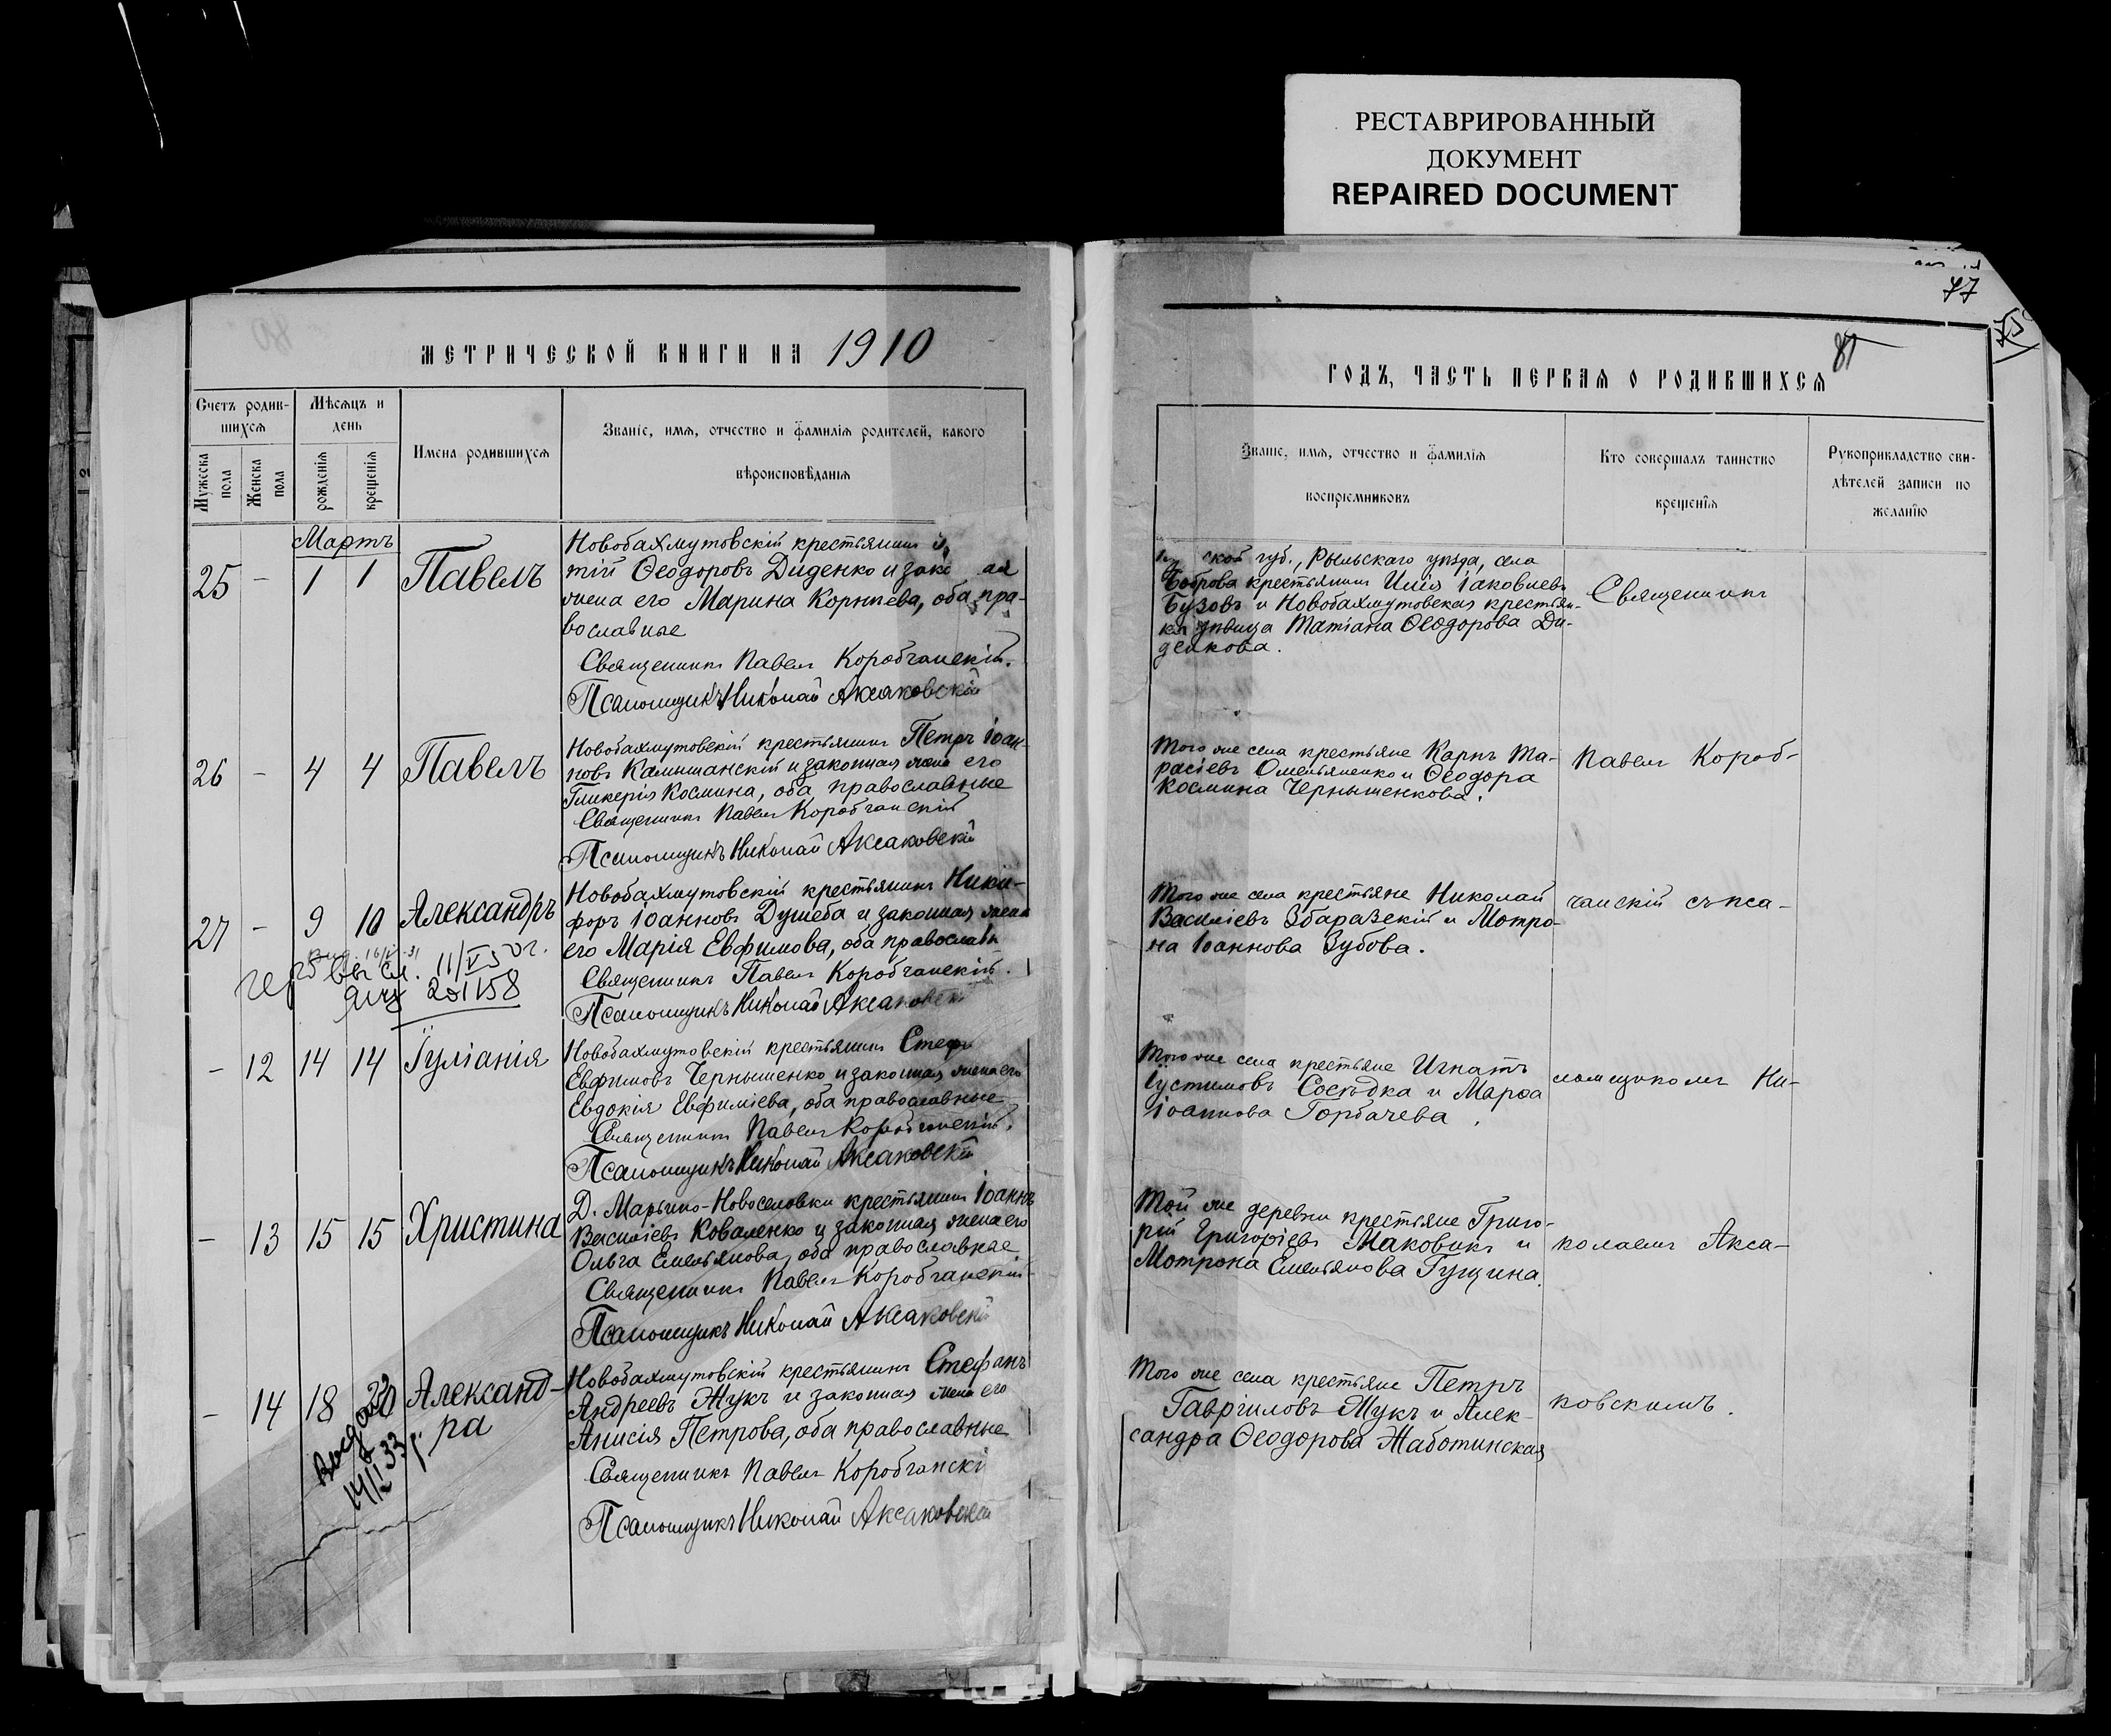 РЕСТАВРИРОВАННЫЙ
ДОКУМЕНТ
REPAIRED DOCUMENT
77
75
81
МЕТРИЧЕСКОЙ КНИГИ НА 1910
Счетъ родив-
шихся
Мужеска пола
Женска пола
Мѣсяцъ и
день
рожденія
крещенія
Имена родившихся
Званіе, имя, отчество и фамилія родителей, какого
вѣроисповѣданія
Мартъ
25 - 1 1 Павелъ
Новобахмутовскій крестьянинъ
тій Ѳеодоровъ Диденко и зако ая
жена его Марина Корнѣева, оба пра-
вославные
Священникъ Павелъ Коробчанскій.
Псаломщикъ Николай Аксаковскій
26 - 4 4 Павелъ
Новобахмутовскій крестьянинъ Петръ Іоан-
новъ Камышанскій и законная жена его
Гликерія Космина, оба православные
Священникъ Павелъ Коробчанскій
Псаломщикъ Николай Аксаковскій
27 - 9 10 Александръ
Новобахмутовскій крестьянинъ Ники-
форъ Іоанновъ Душеба и законная жена
его Марія Евфимова, оба православн
Священникъ Павелъ Коробчанскій.
Псаломщикъ Николай Аксаковскій
16/ 31
11/V 50г.
201158
- 12 14 14 Іуліанія
Новобахмутовскій крестьянинъ Стеф
Евфимовъ Чернышенко и законная жена его
Евдокія Евфиміева, оба православные
Священникъ Павелъ Коробчанскій.
Псаломщикъ Николай Аксаковскій
- 13 15 15 Христина
Д. Марьино-Новоселовки крестьянинъ Іоаннъ
Василіевъ Коваленко и законная жена его
Ольга Емельянова, оба православные.
Священникъ Павелъ Коробчанскій
Псаломщикъ Николай Аксаковскій
- 14 18 20 Александ-
ра
Выдано
14/I 33 г.
Новобахмутовскій крестьянинъ Стефанъ
Андреевъ Жукъ и законная жена его
Анисія Петрова, оба православные
Священникъ Павелъ Коробчанскі
Псаломщикъ Николай Аксаковскій
ГОДЪ, ЧАСТЬ ПЕРВАЯ О РОДИВШИХСЯ
Званіе, имя, отчество и фамилія
воспріемниковъ
Кто совершалъ таинство
крещенія
Рукоприкладство сви-
дѣтелей записи по
желанію
ской губ., Рыльскаго уѣзда, села
Боброва крестьянинъ Илія Іаковлевъ
Бузовъ и Новобахмутовская крестьян-
ка дѣвица Татіана Ѳеодорова Ди-
денкова.
Священникъ
Того же села крестьяне Карпъ Та-
расіевъ Омельяненко и Ѳеодора
Космина Чернышенкова.
Павелъ Короб-
Того же села крестьяне Николай
Василіевъ Збаразскій и Мотро-
на Іоаннова Зубова.
чанскій съ пса-
Того же села крестьяне Игнатъ
Іустиновъ Сосѣдка и Марѳа
Іоаннова Горбачева.
ломщикомъ Ни-
Той же деревни крестьяне Григо-
рій Григоріевъ Маковикъ и
Мотрона Емельянова Гущина.
колаемъ Акса-
Того же села крестьяне Петръ
Гавріиловъ Жукъ и Алек-
сандра Ѳеодорова Жаботинская
ковскимъ.